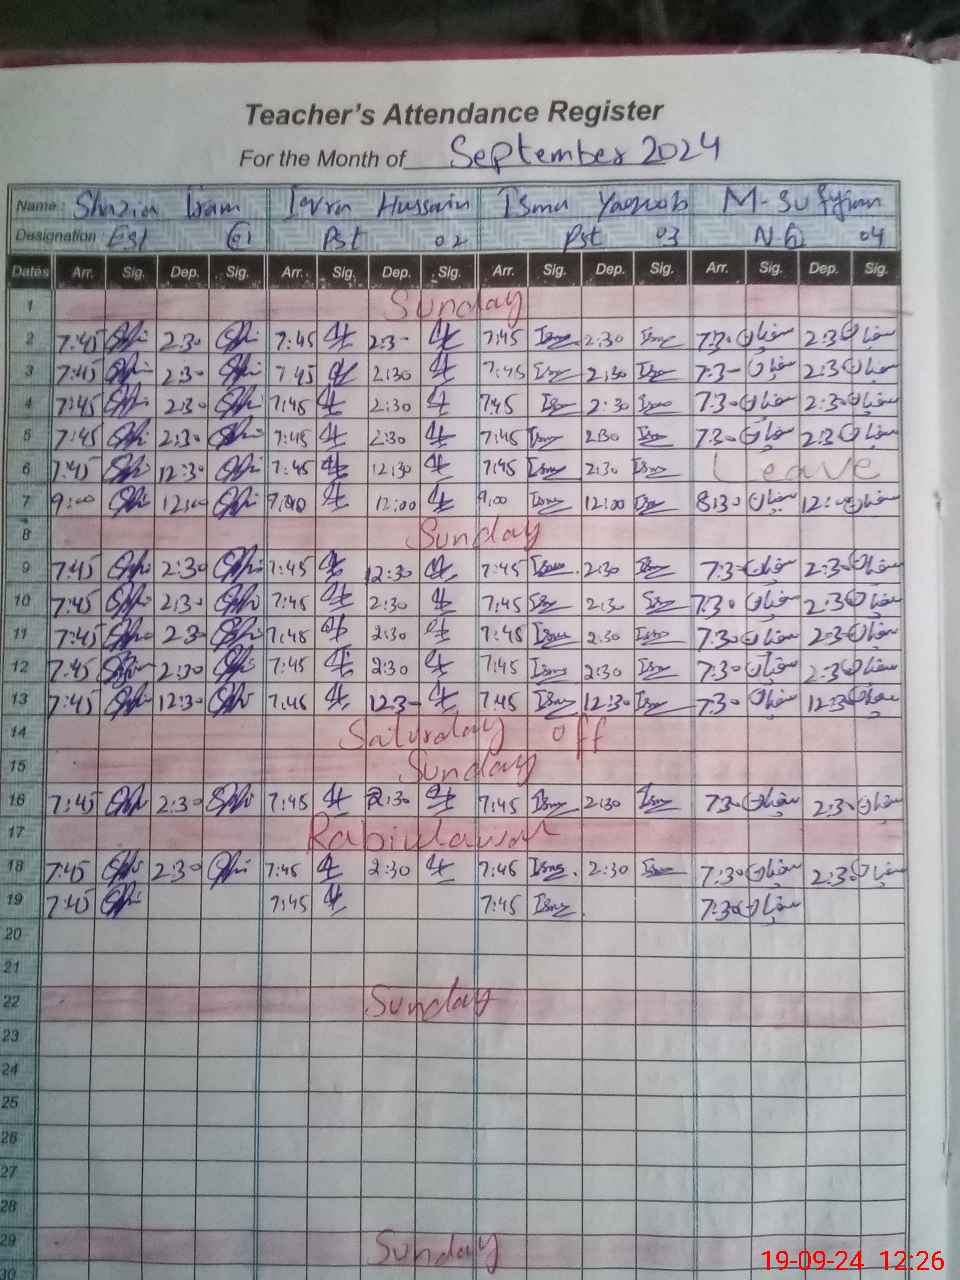 Teacher's Attendance Register
For the Month of September 2024
Name: Shazia Iram Iqra Hussain Isma Yaqoob M-Sufyian
Designation: Est 01 Pst 02 Pst 03 N.Q 04
Dates Arr. Sig. Dep. Sig. Arr. Sig. Dep. Sig. Arr. Sig. Dep. Sig. Arr. Sig. Dep. Sig.
1 Sunday
2 7:45 2:30 7:45 2:3- 7:45 Isma 2:30 Isma 7:30 سفیان 2:30 سفیان
3 7:45 2:30 7:45 2:30 7:45 Isma 2:30 Isma 7:3- سفیان 2:30 سفیان
4 7:45 2:30 7:45 2:30 7:45 Isma 2:30 Isma 7:30 سفیان 2:30 سفیان
5 7:45 2:30 7:45 2:30 7:45 Isma 2:30 Isma 7:30 سفیان 2:30 سفیان
6 7:45 12:30 7:45 12:30 7:45 Isma 2:30 Isma Leave
7 9:00 12:00 9:00 12:00 9:00 Isma 12:00 Isma 8:30 سفیان 12:00 سفیان
8 Sunday
9 7:45 2:30 7:45 12:30 7:45 Isma 2:30 Isma 7:30 سفیان 2:30 سفیان
10 7:45 2:30 7:45 2:30 7:45 Isma 2:30 Isma 7:30 سفیان 2:30 سفیان
11 7:45 2:30 7:45 2:30 7:45 Isma 2:30 Isma 7:30 سفیان 2:30 سفیان
12 7:45 2:30 7:45 2:30 7:45 Isma 2:30 Isma 7:30 سفیان 2:30 سفیان
13 7:45 12:30 7:45 12:3- 7:45 Isma 12:30 Isma 7:30 سفیان 12:30 سفیان
14 Saturday off
15 Sunday
16 7:45 2:30 7:45 2:30 7:45 Isma 2:30 Isma 7:30 سفیان 2:30 سفیان
17 Rabiulawal
18 7:45 2:30 7:45 2:30 7:45 Isma. 2:30 Isma 7:30 سفیان 2:30 سفیان
19 7:45 7:45 7:45 Isma. 7:30 سفیان
20
21
22 Sunday
23
24
25
26
27
28
29 Sunday
30
19-09-24 12:26